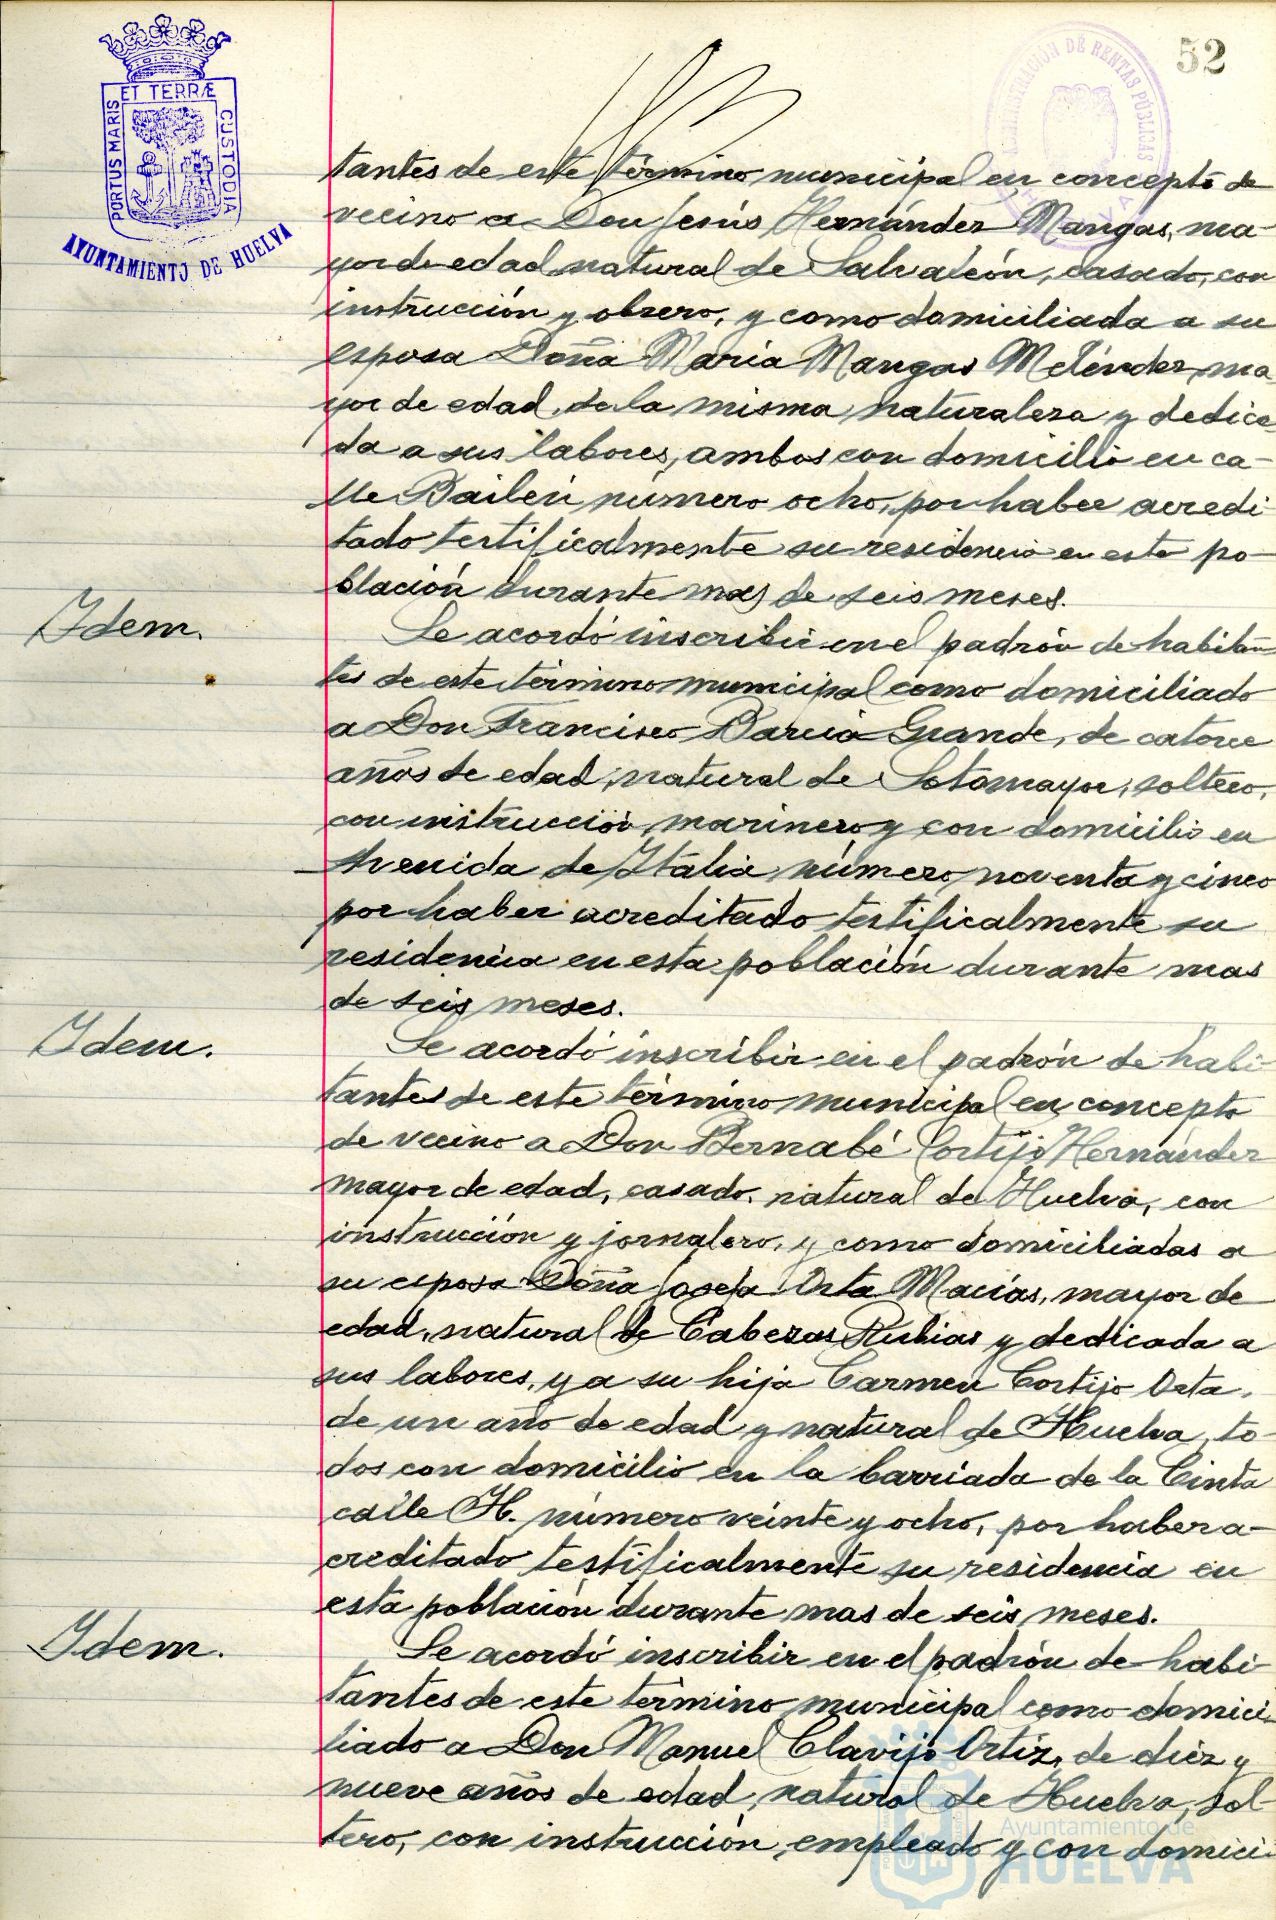 52
ET TERRÆ
PORTUS MARIS
CUSTODIA
AYUNTAMIENTO DE HUELVA
ADMINISTRACIÓN DE RENTAS PÚBLICAS
tantes de este término municipal en concepto de
vecino a Don Jesús Hernández Mangas, ma-
yor de edad, natural de Salvaleón, casado, con
instrucción y obrero, y como domiciliada a su
esposa Doña María Mangas Meléndez, ma
yor de edad, de la misma naturaleza y dedica-
da a sus labores, ambos con domicilio en ca-
lle Bailén número ocho, por haber acredi-
tado testificalmente su residencia en esta po-
blación durante mas de seis meses.
Idem.
Se acordó inscribir en el padrón de habitan-
tes de este término municipal como domiciliado
a Don Francisco Barcia Grande, de catorce
años de edad, natural de Sotomayor, soltero,
con instrucción, marinero y con domicilio en
Avenida de Italia, número noventa y cinco
por haber acreditado testificalmente su
residencia en esta población durante mas
de seis meses.
Idem.
Se acordó inscribir en el padrón de habi-
tantes de este término municipal en concepto
de vecino a Don Bernabé Cortijo Hernández
mayor de edad, casado, natural de Huelva, con
instrucción y jornalero, y como domiciliadas a
su esposa Doña Josefa Orta Macías, mayor de
edad, natural de Cabezas Rubias y dedicada a
sus labores, y a su hija Carmen Cortijo Orta,
de un año de edad y natural de Huelva, to-
dos con domicilio en la barriada de la Cinta
calle H. número veinte y ocho, por haber a-
creditado testificalmente su residencia en
esta población durante mas de seis meses.
Idem.
Se acordó inscribir en el padrón de habi-
tantes de este término municipal como domici-
liado a Don Manuel Clavijo Ortiz, de diez y
nueve años de edad, natural de Huelva, sol-
tero, con instrucción, empleado y con domici-
Ayuntamiento de
HUELVA